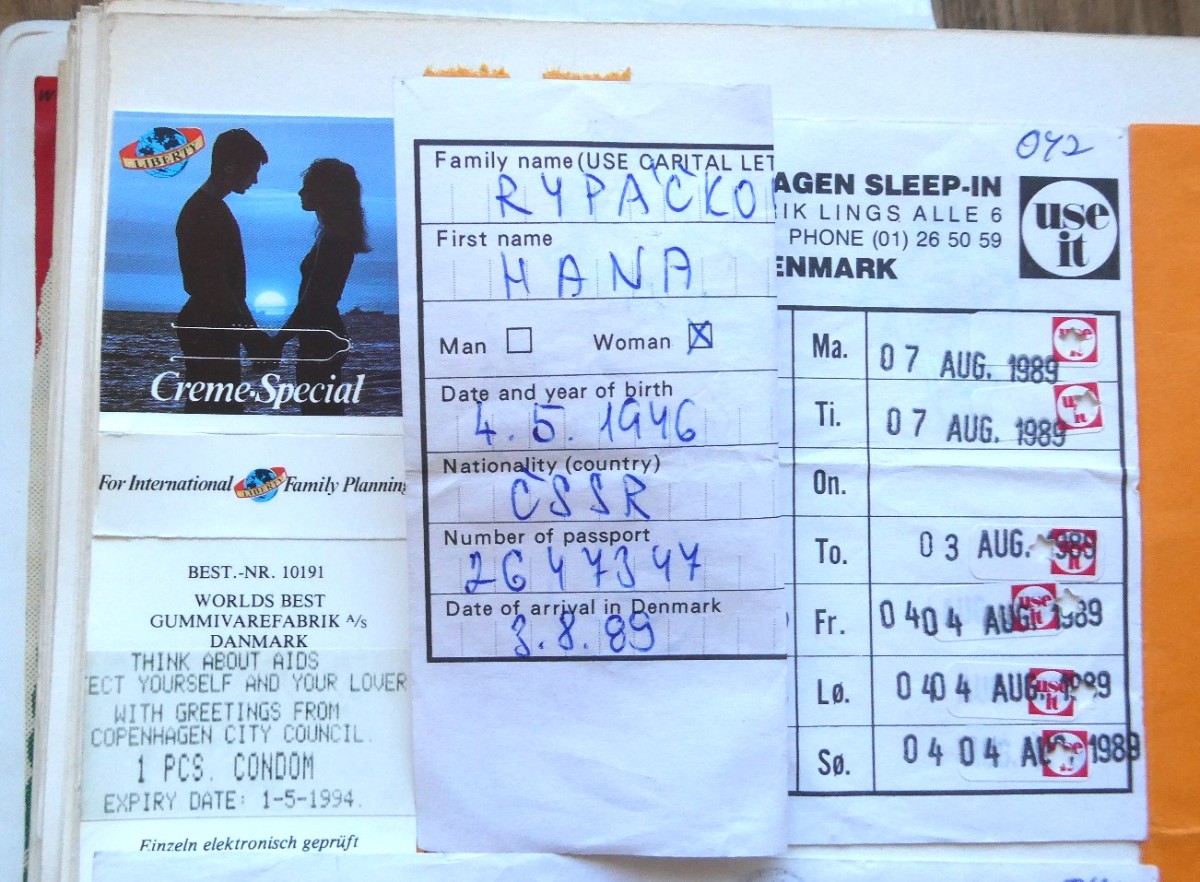 LIBERTY
Creme·Special
For International LIBERTY Family Planning
BEST.-NR. 10191
WORLDS BEST
GUMMIVAREFABRIK A/s
DANMARK
THINK ABOUT AIDS
ECT YOURSELF AND YOUR LOVER
WITH GREETINGS FROM
COPENHAGEN CITY COUNCIL.
1 PCS. CONDOM
EXPIRY DATE: 1-5-1994.
Einzeln elektronisch geprüft
Family name (USE CAPITAL LET
RYPÁČKO
First name
HANA
Man Woman X
Date and year of birth
4. 5. 1946
Nationality (country)
ČSSR
Number of passport
2647347
Date of arrival in Denmark
3. 8. 89
042
AGEN SLEEP-IN
IK LINGS ALLE 6
PHONE (01) 26 50 59
ENMARK
use it
Ma. 07 AUG. 1989
Ti. 07 AUG. 1989
On.
To. 03 AUG. 1989
Fr. 04 04 AUG. 1989 use
Lø. 04 04 AUG. 1989 use
Sø. 04 04 AUG. 1989 use